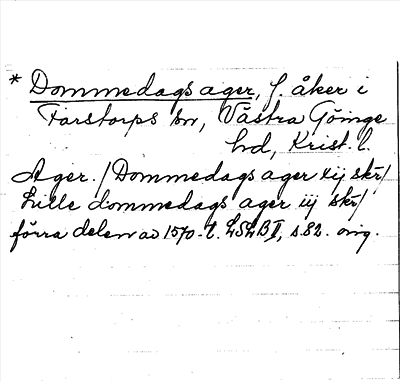 * Dommedags ager, f. åker i
Farstorps sn, Västra Göinge
hd, Krist. l.
Ager. / Dommedags ager iij skr/
Lille dommedags ager iij skr/
förra delen av 1570-t. LSLB II, s. 82. orig.